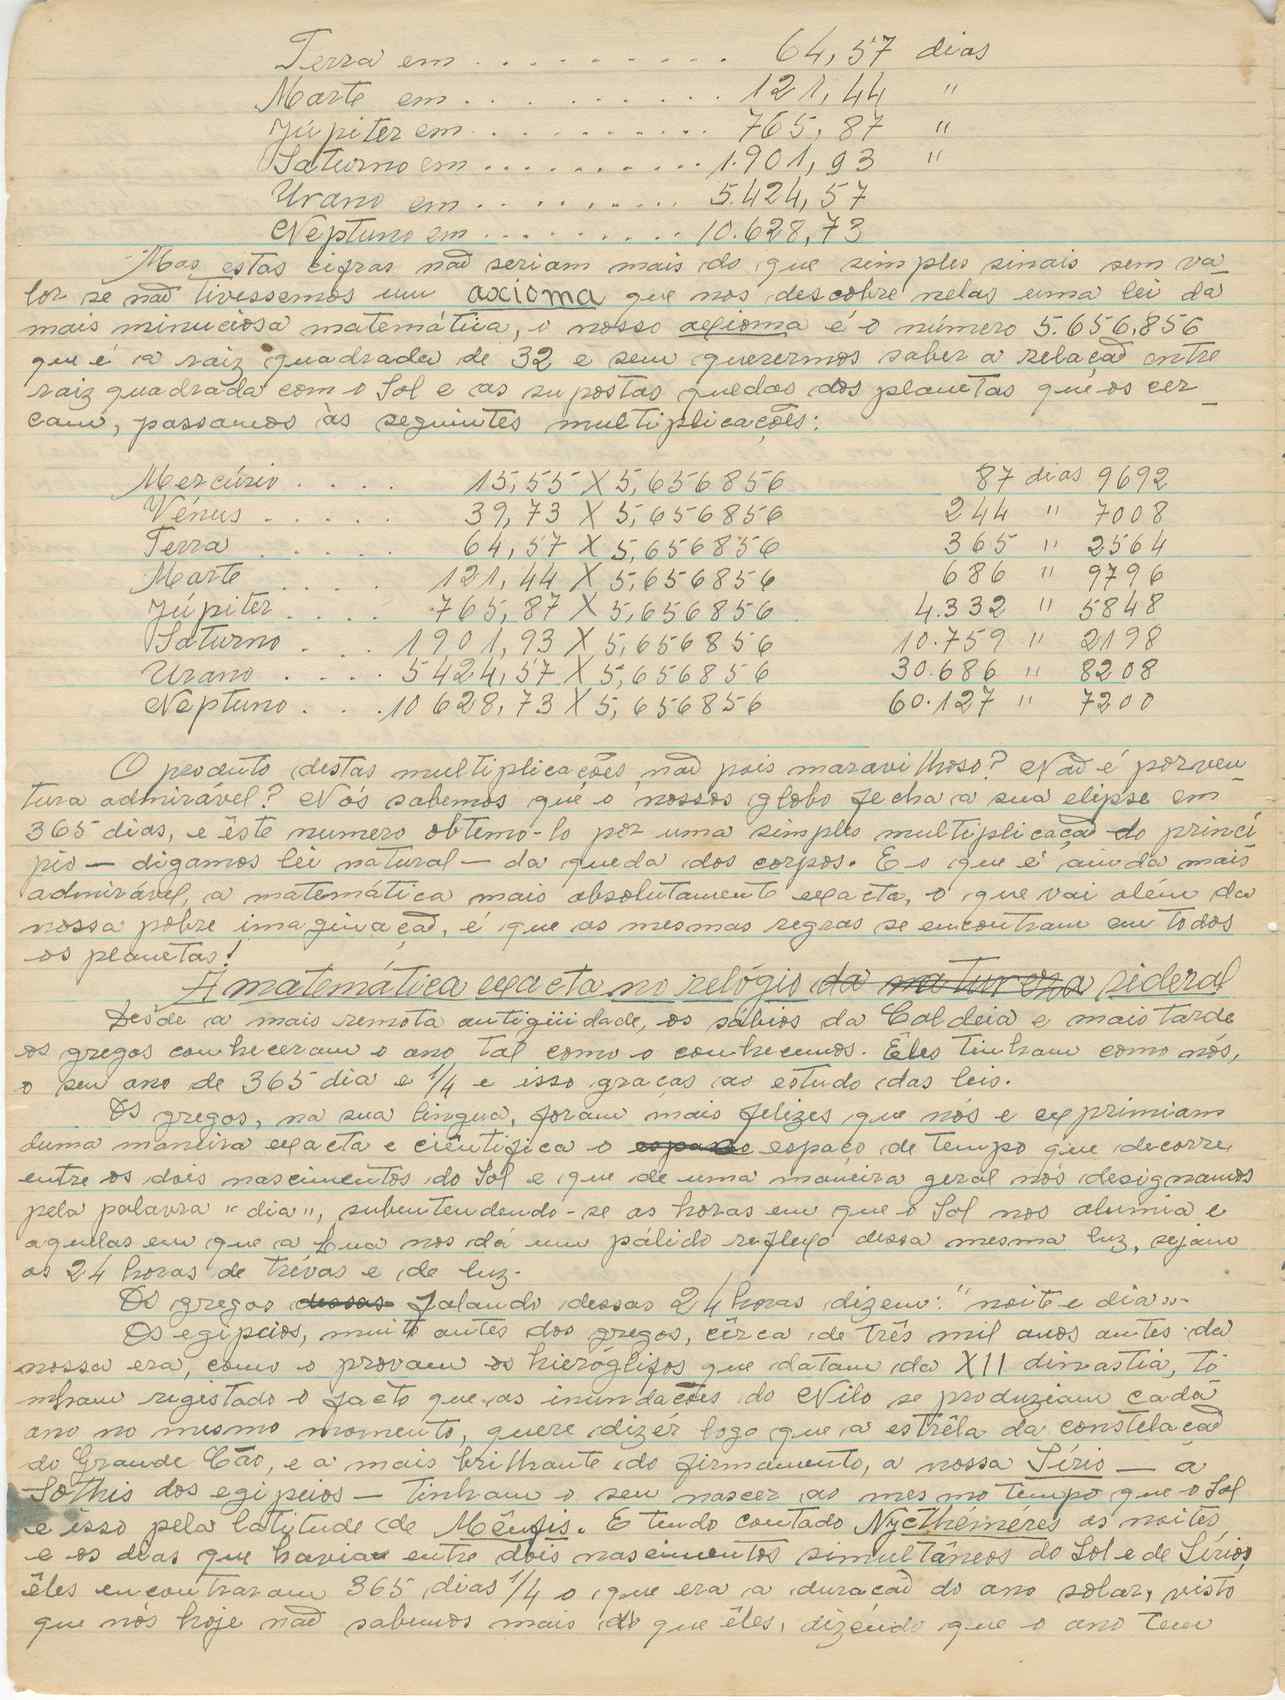 Terra em . . . . . . . . . . 64,57 dias
Marte em . . . . . . . . . . 121,44 "
Júpiter em . . . . . . . . . . 765,87 "
Saturno em . . . . . . . . . . 1.901,93 "
Urano em . . . . . . . . . . 5.424,57
Neptuno em . . . . . . . . . 10.628,73
Mas estas cifras não seriam mais do que simples sinais sem va-
lor se não tivessemos um axioma que nos descobre nelas uma lei da
mais minuciosa matemática, o nosso axioma é o número 5.656,856
que é a raiz quadrada de 32 e sem querermos saber a relação entre
raiz quadrada com o Sol e as supostas quedas dos planetas que os cer-
cam, passamos às seguintes multiplicações:
Mercúrio . . . . 15,55 X 5,656856 87 dias 9692
Vénus . . . . . 39,73 X 5,656856 244 " 7008
Terra . . . . . 64,57 X 5,656856 365 " 2564
Marte . . . . 121,44 X 5,656856 686 " 9796
Júpiter . . . . 765,87 X 5,656856 4.332 " 5848
Saturno . . . 1901,93 X 5,656856 10.759 " 2198
Urano . . . . 5424,57 X 5,656856 30.686 " 8208
Neptuno . . . 10628,73 X 5,656856 60.127 " 7200
O produto destas multiplicações não pois maravilhoso? Não é porven-
tura admirável? Nós sabemos que o nossos globo fecha a sua elipse em
365 dias, e êste numero obtemo-lo por uma simples multiplicação do princí
pio — digamos lei natural — da queda dos corpos. E o que é ainda mais
admirável, a matemática mais absolutamente exacta, o que vai além da
nossa pobre imaginação, é que as mesmas regras se encontram em todos
os planetas!
A matemática exacta no relógio da natureza sideral
Desde a mais remota antigüidade, os sábios da Caldeia e mais tarde
os gregos conheceram o ano tal como o conhecemos. Êles tinham como nós,
o seu ano de 365 dia e 1/4 e isso graças ao estudo das leis.
Os gregos, na sua lingua, foram mais felizes que nós e exprimiam
duma maneira exacta e ciêntifica o espaço de tempo que decorre
entre os dois nascimentos do Sol e que de uma maneira geral nós designamos
pela palavra "dia", subentendendo-se as horas em que o Sol nos alumia e
aquelas em que a Lua nos dá um pálido reflexo dessa mesma luz, sejam
as 24 horas de trévas e de luz.
Os gregos dessas falando dessas 24 horas dizem: "noite e dia".
Os egipcios, muito antes dos gregos, cêrca de três mil anos antes da
nossa era, como o provam os hieróglifos que datam da XII dinastia, ti
nham registado o facto que as inundações do Nilo se produziam cada
ano no mesmo momento, quere dizer logo que a estrêla da constelação
do Grande Cão, e a mais brilhante do firmamento, a nossa Sírio — a
Sothis dos egipcios — tinham o seu nascer ao mesmo tempo que o Sol
e isso pela latitude de Mênfis. E tendo contado Nycthéméres as noites
e os dias que haviam entre dois nascimentos simultâneos do Sol e de Sírios,
êles encontraram 365 dias 1/4 o que era a duração do ano solar, visto
que nós hoje não sabemos mais do que êles, dizendo que o ano tem